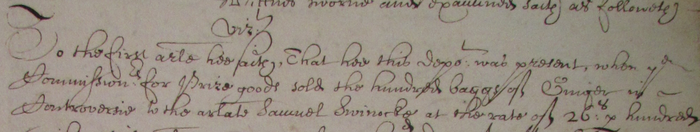 Wittnes sworne and examined saith as followeth
vizt
To the first arle hee saith, That hee this depot was present, when ye
Commissionrs for Prize goods sold the hundred baggs of Ginger in
Controversie to the arlate Samuel Swinocke at the rate of 26s p hundred